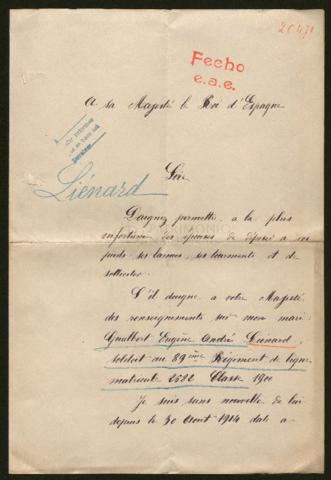 20471
Fecho
e.a.e.
A sa Majesté le Roi d'Espagne
Liénard
Sire
Daignez permettre a la plus
infortunée des épouses de déposer a vos
pieds ses larmes, ses tourments et de
solliciter.
S'il daigne a votre Majesté
des renseignements sur mon mari
Gualbert Eugène André Liénard
soldat au 89ème Régiment de ligne
matricule 2522 Classe 1900
Je suis sans nouvelle de lui
depuis le 30 Aout 1914 date a